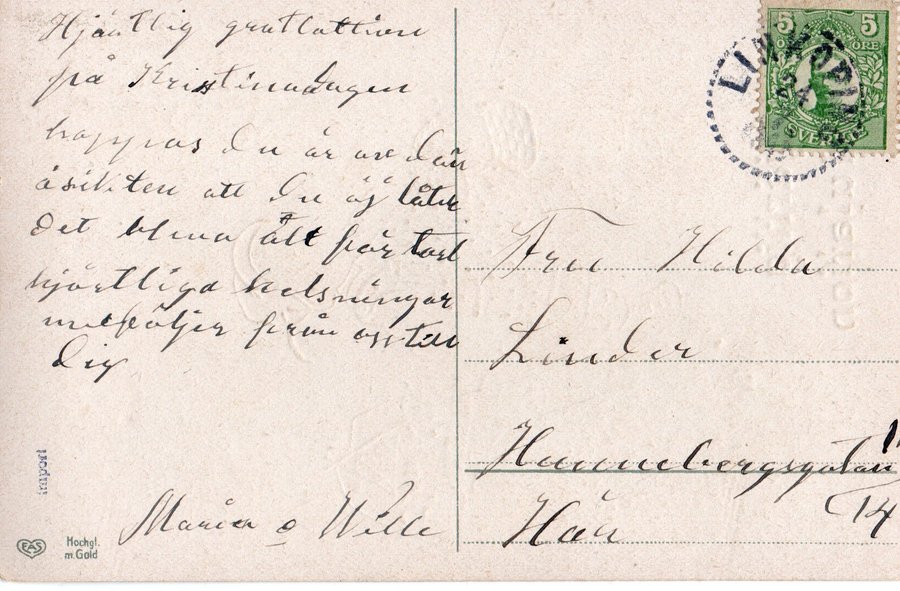 Hjärtlig gratlattion
på Kristinadagen
hoppas du är av den
åsikten att du ej låter
det bliva ått för tort
hjärtliga helsningar
medföljer från oss till
dig
Maria o Wille
Import
EAS
Hochgl.
m. Gold
5 5
ÖRE
SVERIGE
LINKÖPING
Fru Hilda
Linder
Hunnebergsgatan
14
Här